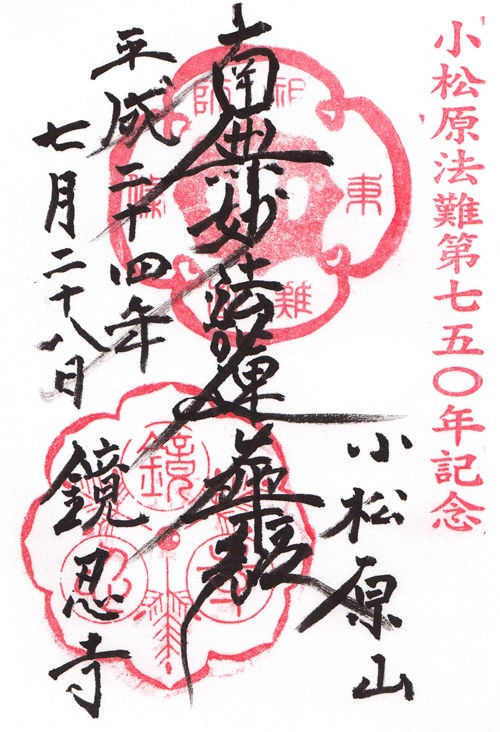 小松原法難第七五〇年記念
小松原山
南無妙法蓮華経
平成二十四年
七月二十八日
鏡忍寺
祖師
東
難
鏡
忍
寺